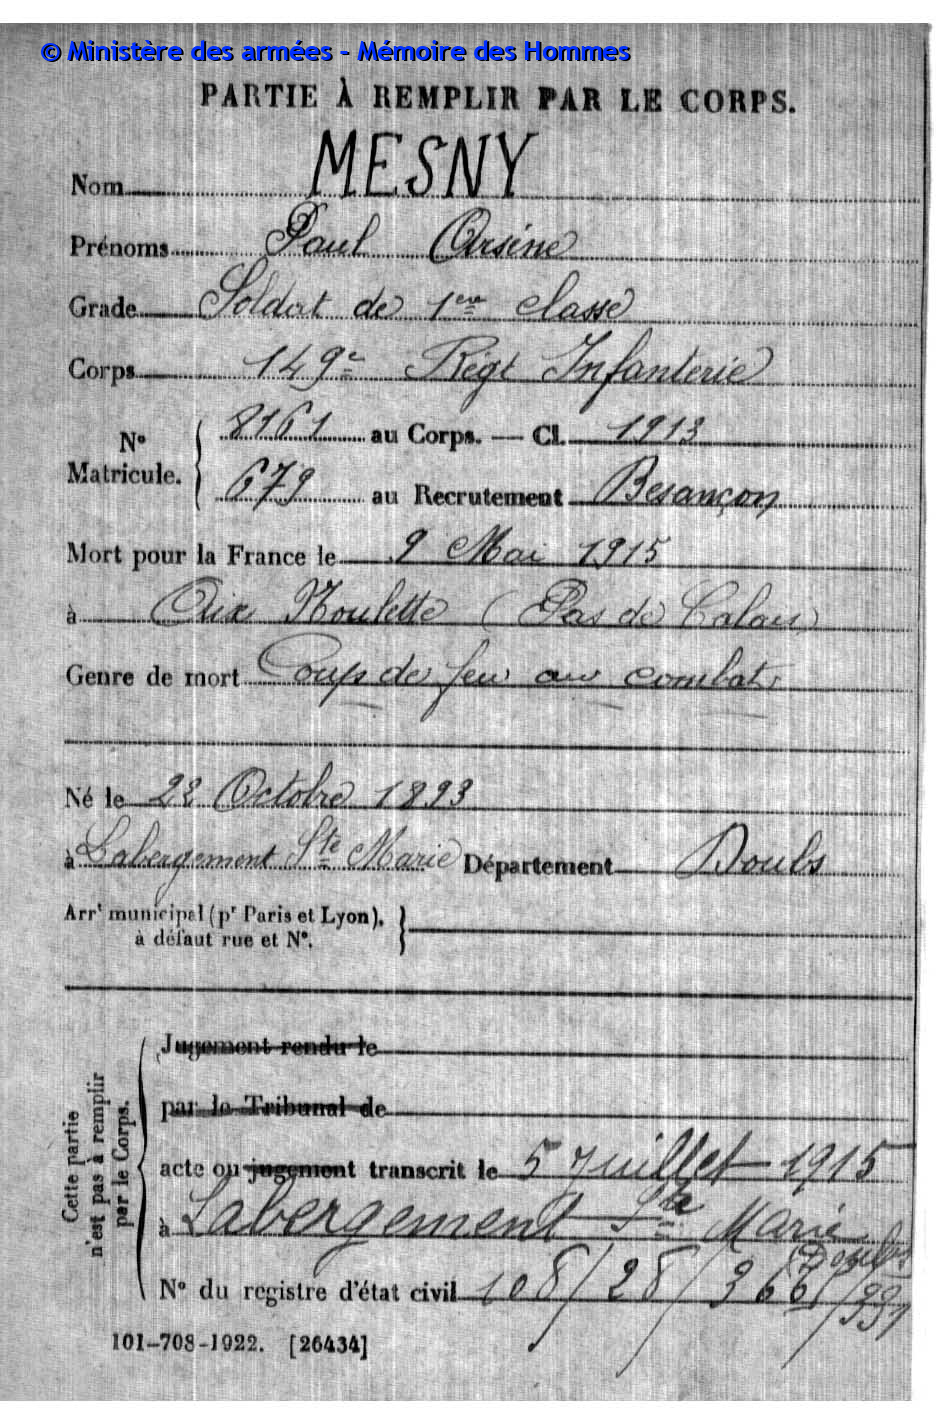 © Ministère des armées - Mémoire des Hommes
PARTIE À REMPLIR PAR LE CORPS.
Nom MESNY
Prénoms Paul Arsène
Grade Soldat de 1ère classe
Corps 149e Régt Infanterie
N° Matricule. { 8161 au Corps. — Cl. 1913
679 au Recrutement Besançon
Mort pour la France le 9 Mai 1915
à Aix Noulette (Pas de Calais)
Genre de mort Coups de feu au combat
Né le 28 Octobre 1893
à Labergement Ste Marie Département Doubs
Arrt municipal (pr Paris et Lyon),
à défaut rue et N°.
Cette partie
n'est pas à remplir
par le Corps.
Jugement rendu le
par le Tribunal de
acte ou jugement transcrit le 5 Juillet 1915
à Labergement Ste Marie
(Doubs)
N° du registre d'état civil 108/28/366/
101-708-1922. [26434]